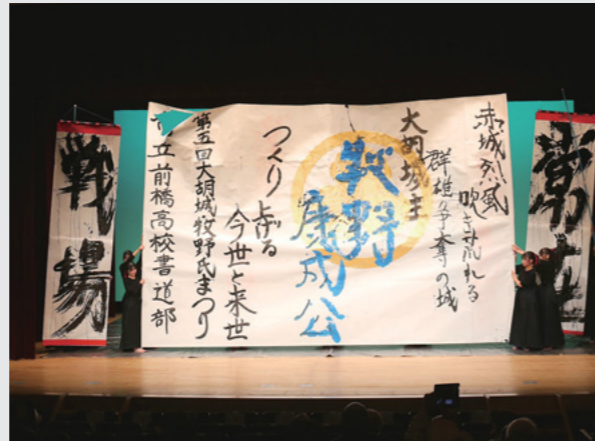 常在
赤城烈風
吹き荒れる
群雄の争奪の城
大胡城主
牧野
康成公
つくり上げる
今世と来世
第五回大胡城牧野氏まつり
市立前橋高校書道部
戦場